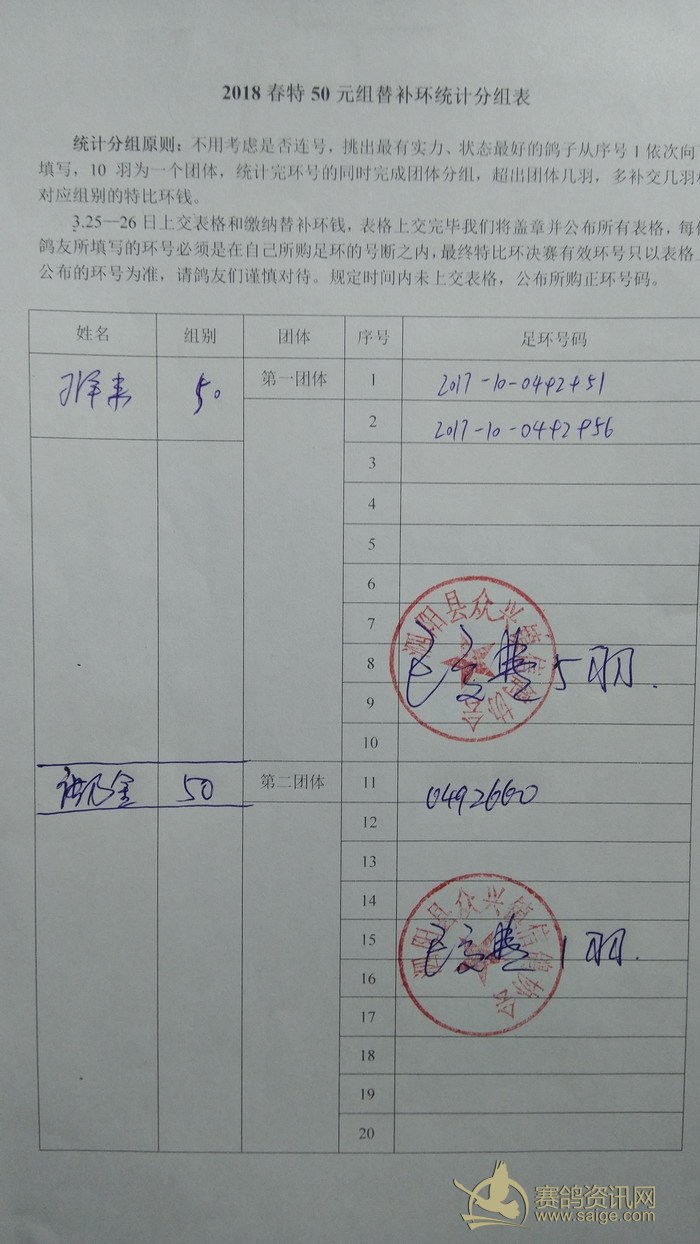 2018 春特 50 元组替补环统计分组表
统计分组原则：不用考虑是否连号，挑出最有实力、状态最好的鸽子从序号 1 依次向
填写，10 羽为一个团体，统计完环号的同时完成团体分组，超出团体几羽，多补交几羽
对应组别的特比环钱。
3.25—26 日上交表格和缴纳替补环钱，表格上交完毕我们将盖章并公布所有表格，每
鸽友所填写的环号必须是在自己所购足环的号断之内，最终特比环决赛有效环号只以表格
公布的环号为准，请鸽友们谨慎对待。规定时间内未上交表格，公布所购正环号码。
姓名 组别 团体 序号 足环号码
50 第一团体 1
2
3
4
5
6
7
8 5羽.
9
10
50 第二团体 11 0492660
12
13
14
15 1羽.
16
17
18
19
20
泗阳县众兴镇信鸽协会
泗阳县众兴镇信鸽协会
赛鸽资讯网
www.saige.com